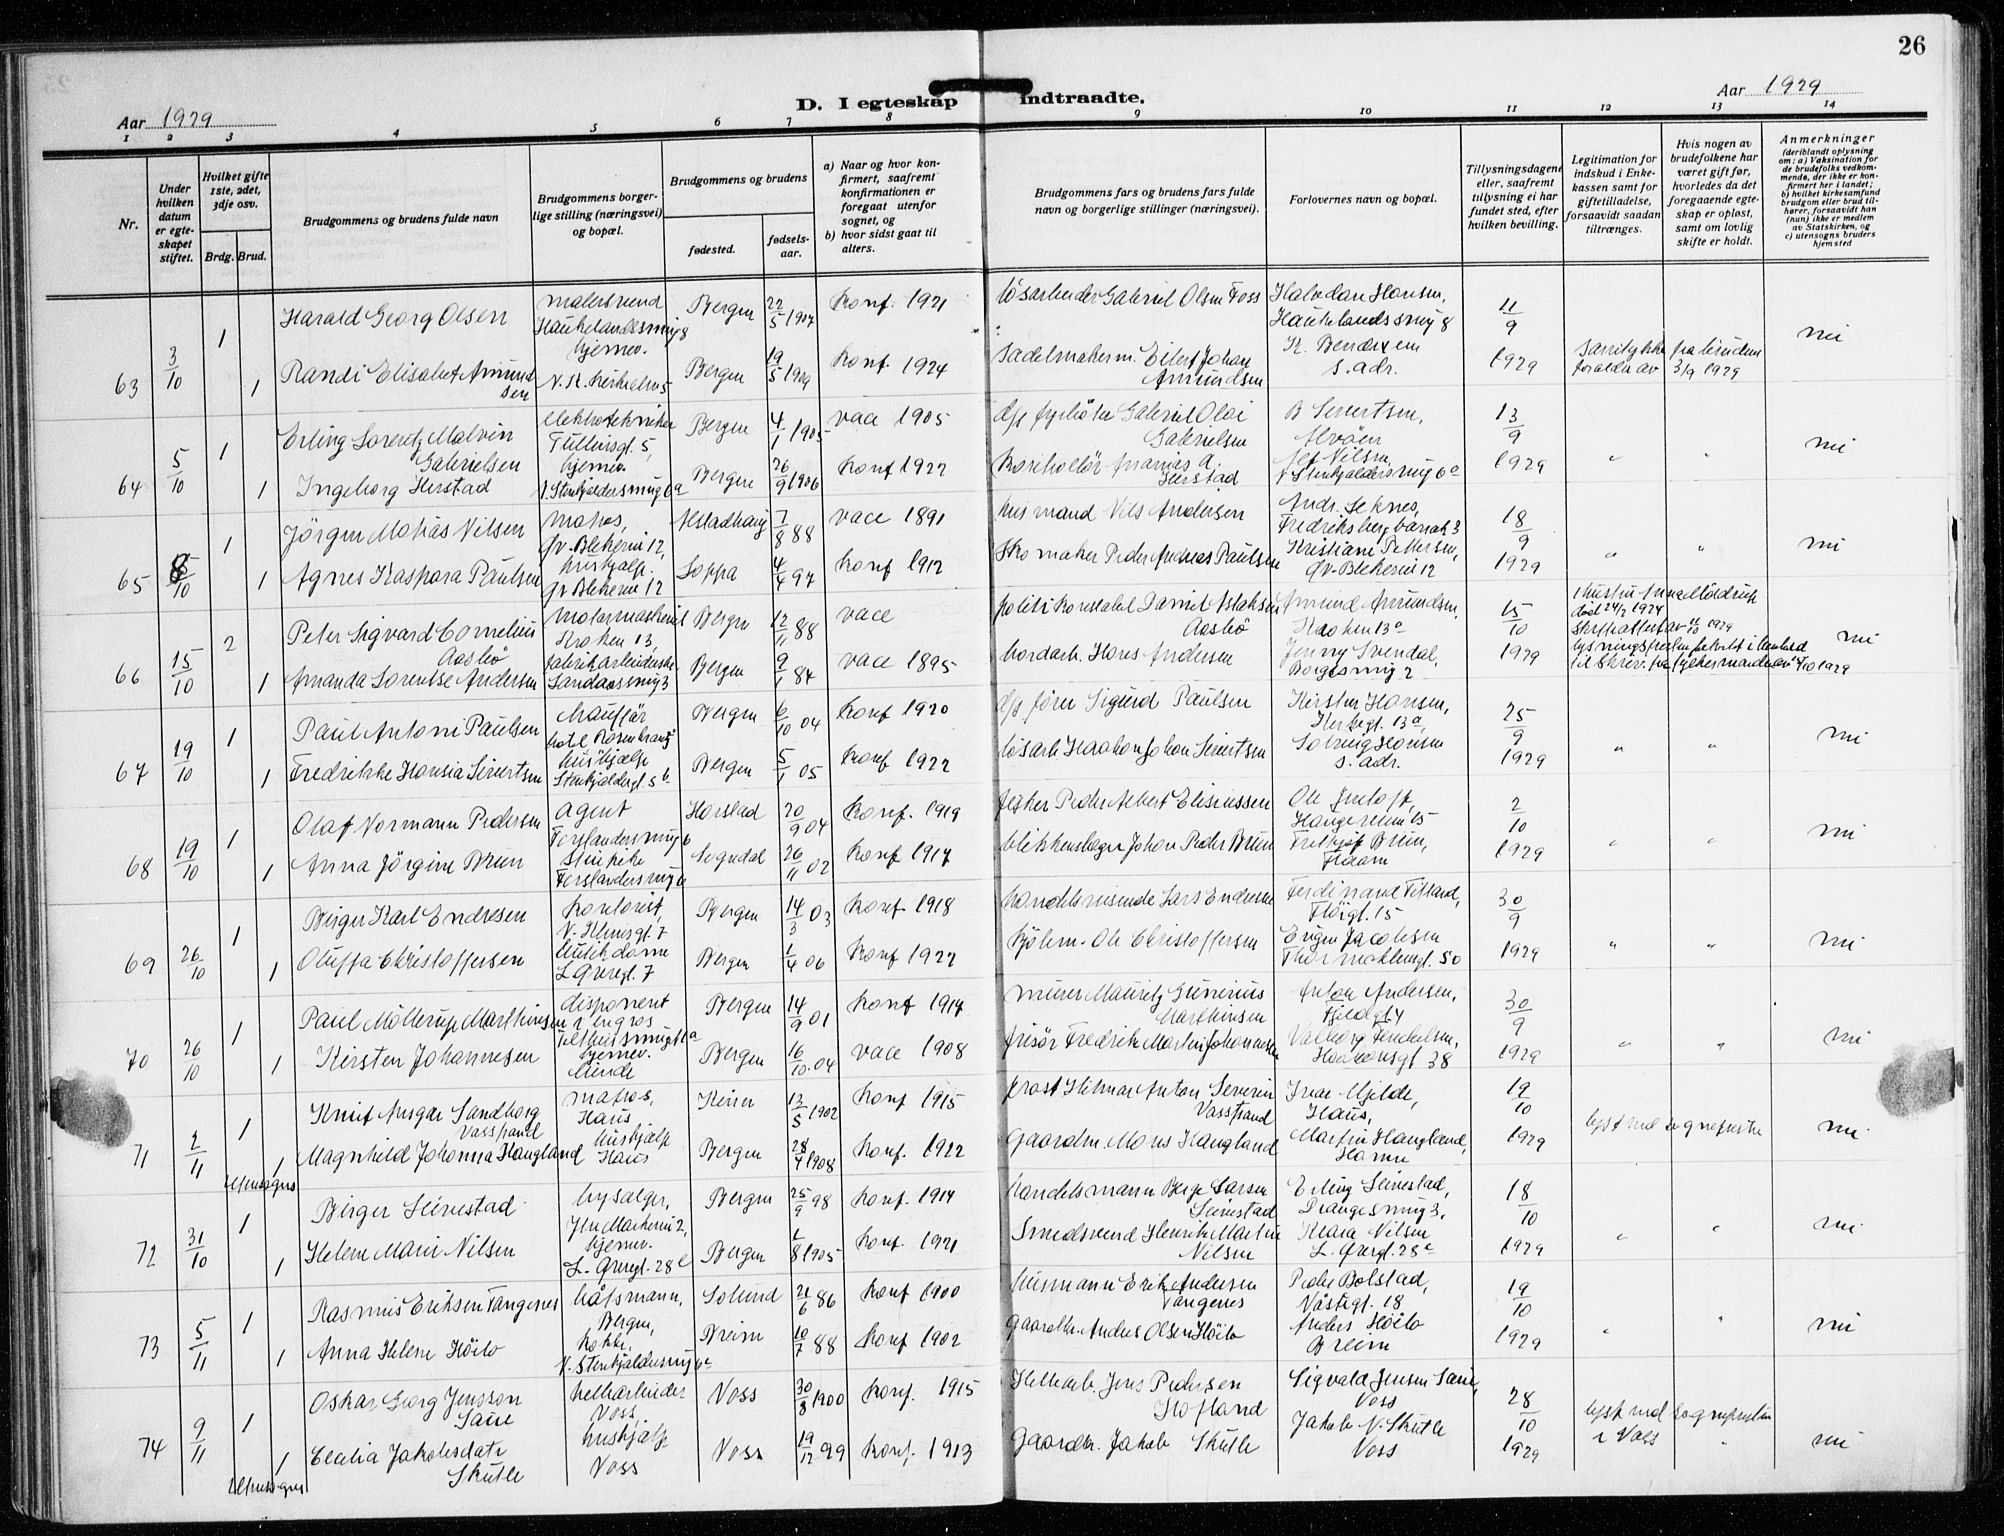 26
Aar 1929
D. I egteskap indtraadte.
Aar 1929
1 2 3 4 5 6 7 8 9 10 11 12 13 14
Nr.
Under hvilken datum er egteskapet stiftet.
Hvilket gifte 1ste, 2det, 3dje osv.
Brdg. Brud.
Brudgommens og brudens fulde navn
Brudgommens borgerlige stilling (næringsvei) og bopæl.
Brudgommens og brudens
fødested.
fødselsaar.
a) Naar og hvor konfirmert, saafremt konfirmationen er foregaat utenfor sognet, og
b) hvor sidst gaat til alters.
Brudgommens fars og brudens fars fulde navn og borgerlige stillinger (næringsvei).
Forlovernes navn og bopæl.
Tillysningsdagene eller, saafremt tillysning ei har fundet sted, efter hvilken bevilling.
Legitimation for indskud i Enkekassen samt for giftetilladelse, forsaavidt saadan tiltrænges.
Hvis nogen av brudefolkene har været gift før, hvorledes da det foregaaende egteskap er opløst, samt om lovlig skifte er holdt.
Anmerkninger
(deriblandt oplysning om: a) Vaksination for de brudefolks vedkommende, der ikke er konfirmert her i landet;
b) hvilket kirkesamfund brudgom eller brud tilhører, forsaavidt han (hun) ikke er medlem av Statskirken, og
c) utensogns bruders hjemsted
63 3/10 1 Harald Georg Olsen malersvend Haukelandssmug 8 hjemev. Bergen 22/5 1907 Konf. 1921 løsarbeider Gabriel Olsen Foss Halvdan Hansen, Haukelandssmug 8 11/9 nei
1 Randi Elisabet Amundsen Bergen 19/5 1909 Konf. 1924 sadelmakerm. Eilert Johan Amundsen K. Bendixen s. adr. 1929 samtykke fra brudens forældre av 3/9 1929
64 5/10 1 Erling Lorentz Malvin Gabrielsen elektrotekniker Tullinsgt. 5, hjemev. Bergen 4/1 1905 vace 1905 Gabriel Olai Gabrielsen B Sivertsen, Alvøen 13/9 nei
1 Ingeborg Herstad V. Stenkjeldersmug 6a Bergen 26/9 1906 Konf 1922 Herstad Nilsen, V Stenkjeldersmug 6a 1929 " "
65 5/10 1 Jörgen Matias Nilsen matros, Gr. Blekevei 12, Alstadhaug 7/8 88 vace 1891 husmand Nils Andersen Andr. Seknes, Fredriksberg barak 3 18/9 nei
1 Agnes Kaspara Paulsen hushjælp. Gr Blekevei 12 Loppa 4/4 97 Konf 1912 Skomaker Peder Andreas Paulsen Kristiane Pettersen, Gr. Blekevei 12 1929 " "
66 15/10 2 Peter Sigvard Cornelius Aasbö Kroken 13, Bergen 12/11 88 vace politikonstabel Aasbö Amund Amundsen, Kroken 13a 15/10 død 24/2 1924 nei
1 Amanda Lorentse Andersen fabrikarbeiderske Sandaasmug 3 Bergen 9/1 84 vace 1895 Hans Andersen Jenny Svendal, Borgesmug 2 1929
67 19/10 1 Paul Antoni Paulsen chauffør hotel Rosenkrantz Bergen 6/10 04 Konf 1920 Sigurd Paulsen Kirsten Hansen, 13a, 25/9 nei
1 Fredrikke Hansia Sivertsen hushjælp Stenkjeldergt. 5b Bergen 5/1 05 Konf 1922 løsarb Haakon Johan Sivertsen Solveig Hansen s. adr. 1929 " "
68 19/10 1 Olaf Normann Pedersen agent Forslandersmug 6 Harstad 20/9 04 Konf. 1919 fisker Peder Albert Elisæussen Ole 15 2/10 nei
1 Anna Jörgine Brun Forslandersmug 6 Sogndal 26/11 02 Konf 1917 blikkenslager Johan Peder Brun Fritjof Brun, Flaam 1929 " "
69 26/10 1 Birger Karl Endresen kontorist, 7 Bergen 14/3 03 Konf. 1918 handelsreisende Lars Endresen Ferdinand Titland, 15 30/9 nei
1 Oluffa Christoffersen butikdame L. Øvregt. 7 Bergen 1/4 06 Konf 1922 Ole Christoffersen Jacobsen Thormøhlensgt. 50 1929 " "
70 26/10 1 Paul Möllerup Marthinsen disponent i engros Bergen 14/9 01 Konf 1917 murer Mauritz Gunerius Marthinsen Anton Andersen, Fjeldgt 4 30/9 nei
1 Kirsten Johannesen hjemev. Bergen 16/10 04 vace 1908 frisör Fredrik Martin Johannesen Valborg Haakonsgt 38 1929 " "
71 2/11 1 Knut Ansgar Sandborg Vasstrand matros, Haus 13/5 1902 Konf 1915 prost Hilmar Anton Severin Vasstrand Ivar Mjelde, Haus, 19/10 nei
1 utensogns Magnhild Johanna Haugland hushjælp Haus Bergen 28/4 1908 Konf. 1922 Gaardm. Mons Haugland Martin Haugland, Hamre 1929 lyst ved sogneprest
72 31/10 1 Birger Seivestad bysælger, hjemev. Bergen 25/9 98 Konf. 1914 handelsmann Berge Larsen Seivestad Erling Seivestad, Drangesmug 3, 18/10 nei
1 Helene Marie Nilsen L. Øvregt. 28c Bergen 1/8 1905 Konf. 1921 Smedsvend Henrik Martin Nilsen Klara Nilsen L. Øvregt. 28c 1929 " "
73 5/11 1 Rasmus Eriksen Tangenes båtsmann, Bergen, Solund 21/6 86 Konf 1900 husmann Erik Andersen Tangenes Peder Bolstad, Nøstegt. 18 19/10 nei
1 Anna Helene Höilo kokke, V. Stenkjeldersmug 6c Breim 10/7 88 Konf 1902 Gaardbr. Anders Olsen Höilo Anders Höilo Breim 1929 " "
74 9/11 1 Oskar Georg Jensson Saue Voss, Voss 30/8 1900 Konf. 1915 Jens Pedersen Hofland Sigvald Jensen Saue, Voss 28/10 lyst ved sogneprest i Voss nei
1 utensogns Cecilia Jakobsdatr Skutle hushjælp Voss Voss 19/12 99 Konf. 1913 Gaardbr. Jakob Skutle Jakob N. Skutle Voss 1929 "